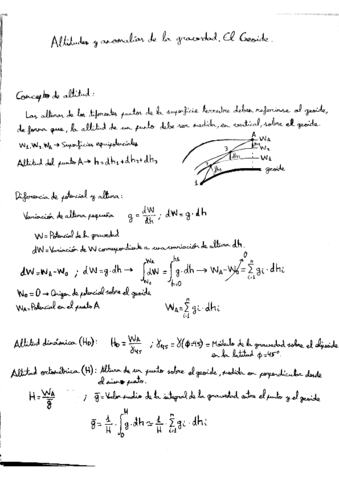 Altitudes y anomalías de la gravedad. El Geoide.
Concepto de altitud:
Las alturas de los diferentes puntos de la superficie terrestre deben referirse al geoide,
de forma que, la altitud de un punto debe ser medida, en vertical, sobre el geoide.
W₁, W₂, W₃ → Superficies equipotenciales
Altitud del punto A → h = dh₁ + dh₂ + dh₃
A
3
1
geoide
Diferencia de potencial y altura:
Variación de altura pequeña g = dW/dh ; dW = g·dh
W = Potencial de la gravedad
dW = Variación de W correspondiente a una variación de altura dh.
dW = W_A - W₀ ; dW = g·dh → ∫dW = ∫g·dh → W_A - W₀ = Σ gᵢ·dhᵢ
W₀ = 0 → Origen de potencial sobre el geoide
W_A = Potencial en el punto A W_A = Σ gᵢ·dhᵢ
Altitud dinámica (H_D): H_D = W_A/γ₄₅ ; γ₄₅ = γ(φ=45) = Módulo de la gravedad sobre el elipsoide
en la latitud φ = 45°
Altitud ortométrica (H): Altura de un punto sobre el geoide, medida en perpendicular desde
el mismo punto.
H = W_A/ḡ ; ḡ = Valor medio de la integral de la gravedad entre el punto y el geoide
ḡ = 1/H · ∫g·dh ≃ 1/H · Σ gᵢ·dhᵢ